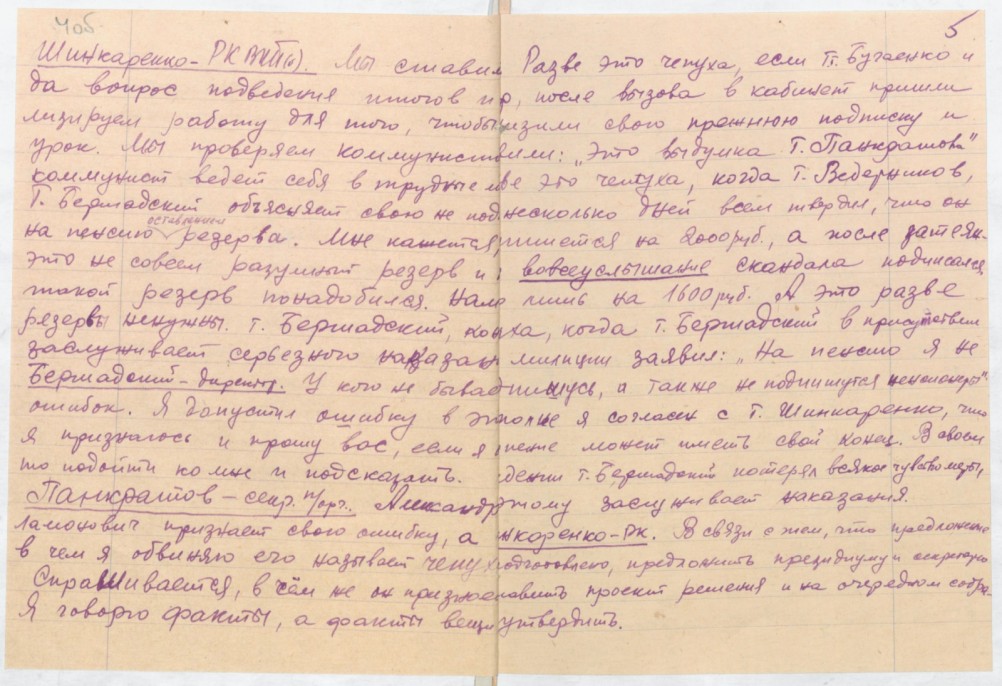 Шинкаренко – РК ВКП(б). Мы ставим
да вопрос подведения итогов и
лизируем работу для того, чтобы
урок. Мы проверяем коммунистов
коммунист ведет себя в трудные
Т. Бершадский объясняет свою не под
на пенсию оставлением резерва. Мне кажется,
это не совсем разумный резерв и
такой резерв понадобился. Нам
резервы ненужны. т. Бершадский,
заслуживает серьезного наказан
Бершадский – директор. У кого не быва
ошибок. Я допустил ошибку в это
я признаюсь и прошу Вас, если я
то подойти ко мне и подсказать.
Панкратов – секр. п/орг. Александр
признает свою ошибку, а
в чем я обвиняю его называет чепух
Спрашивается, в чём же он призна
Я говорю факты, а факты вещи
5
Разве это чепуха, если т.т. Бугаенко и
р, после вызова в кабинет пришли
изили свою прежнюю подписку и
или: „Это выдумка т. Панкратова"
ве это чепуха, когда т. Ведерников,
несколько дней всем твердил, что он
пишется на 2000 руб., а после затеян-
вовсеуслышание скандала подписался
лишь на 1600 руб. А это разве
ха, когда т. Бершадский в присутствии
милиции заявил: „На пенсию я не
пишусь, а также не подпишутся пенсионеры"
лне я согласен с т. Шинкаренко, что
пение может иметь свой конец. В своем
дении т. Бершадский потерял всякое чувство меры,
этому заслуживает наказания.
нкаренко-РК. В связи с тем, что предложение
одготовлено, предложить президиуму и секретарю
ставить проект решения и на очередном собра-
утвердить.